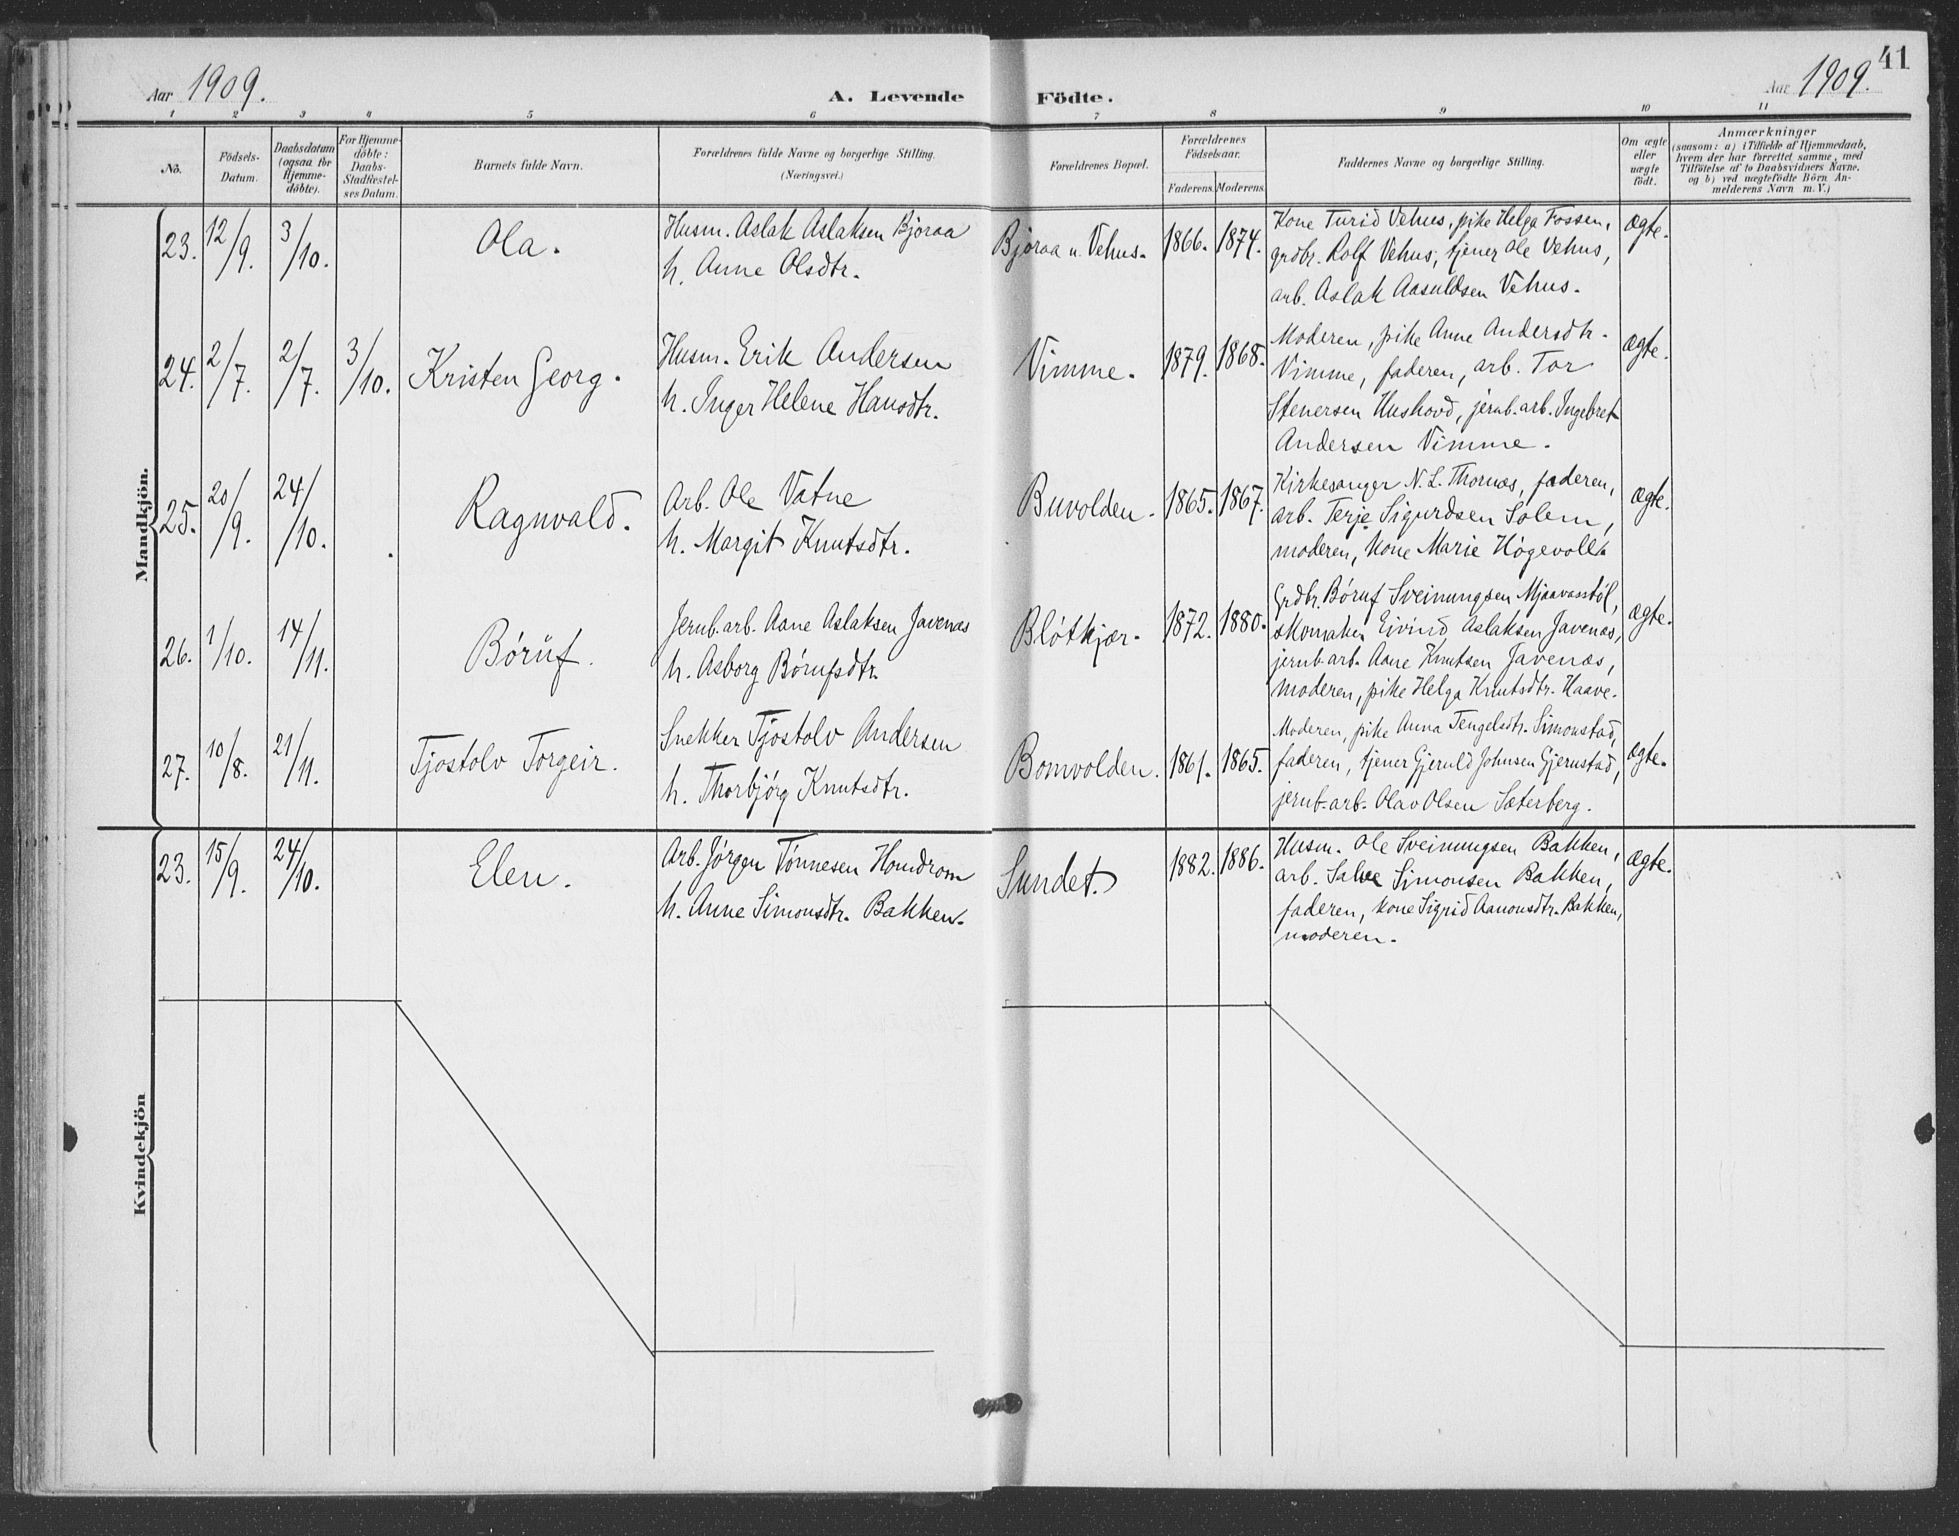 41
Aar 1909. A. Levende Födte. Aar 1909.
1 2 3 4 5 6 7 8 9 10 11
No.
Födsels-
Datum.
Daabsdatum
(ogsaa for
Hjemme-
döbte).
For Hjemme-
döbte:
Daabs-
Stadfæstel-
ses Datum.
Barnets fulde Navn.
Forældrenes fulde Navne og borgerlige Stilling.
(Næringsvei.)
Forældrenes Bopæl.
Forældrenes
Födselsaar.
Faderens. Moderens.
Faddernes Navne og borgerlige Stilling.
Om ægte
eller
uægte
födt.
Anmærkninger
(saasom: a) i Tilfælde af Hjemmedaab,
hvem der har forrettet samme, med
Tilföielse af to Daabsvidners Navne.
og b) ved uægtefödte Börn An-
melderens Navn m. V.)
Mandkjön.
23. 12/9. 3/10. Ola.
Husm. Aslak Aslaksen Bjoraa
h. Anne Olsdtr.
Bjoraa u. Vehus. 1866. 1874.
Kone Turid Vehus, pike Helga Fossen,
grdbr. Rolf Vehus, tjener Ole Vehus,
arb. Aslak Aasuldsen Vehus.
ægte.
24. 2/7. 2/7. 3/10. Kristen Georg.
Husm. Erik Andersen
h. Inger Helene Hansdtr.
Vimme. 1879. 1868.
Moderen, pike Anne Andersdtr.
Vimme, faderen, arb. Tor
Stenersen Hushovd, jernb.arb. Ingebret
Andersen Vimme.
ægte.
25. 20/9. 24/10. Ragnvald.
Arb. Ole Vatne
h. Margit Knutsdtr.
Buvolden. 1865. 1867.
Kirkesanger N. L. Thornæs, faderen,
arb. Terje Sigurdsen Solem,
moderen, kone Marie Høgevolla
ægte.
26. 1/10. 14/11. Bórúf.
Jernb.arb. Aane Aslaksen Javenæs
h. Asborg Bórufsdtr.
Blótkjær. 1872. 1880.
Grdbr. Bóruf Sveinungsen Mjaavasstøl,
skomaker Eivind Aslaksen Javenæs,
jernb.arb. Aane Knutsen Javenæs,
moderen, pike Helga Knutsdtr. Haave.
ægte.
27. 10/8. 21/11. Tjostolv Torgeir.
Snekker Tjostolv Andersen
h. Thorbjórg Knutsdtr.
Bomvolden. 1861. 1865.
Moderen, pike Anna Tengelsdtr. Simonstad,
faderen, tjener Gjeruld Johnsen Gjerustad,
jernb.arb. Olav Olsen Sæterberg.
ægte.
Kvindekjön
23. 15/9. 24/10. Elen.
Arb. Jórgen Tónnesen Homdrom
h. Anne Simonsdtr. Bakken.
Sundet. 1882. 1886.
Husm. Ole Sveinungsen Bakken,
arb. Salve Simonsen Bakken,
faderen, kone Sigrid Aanonsdtr. Bakken,
moderen.
ægte.